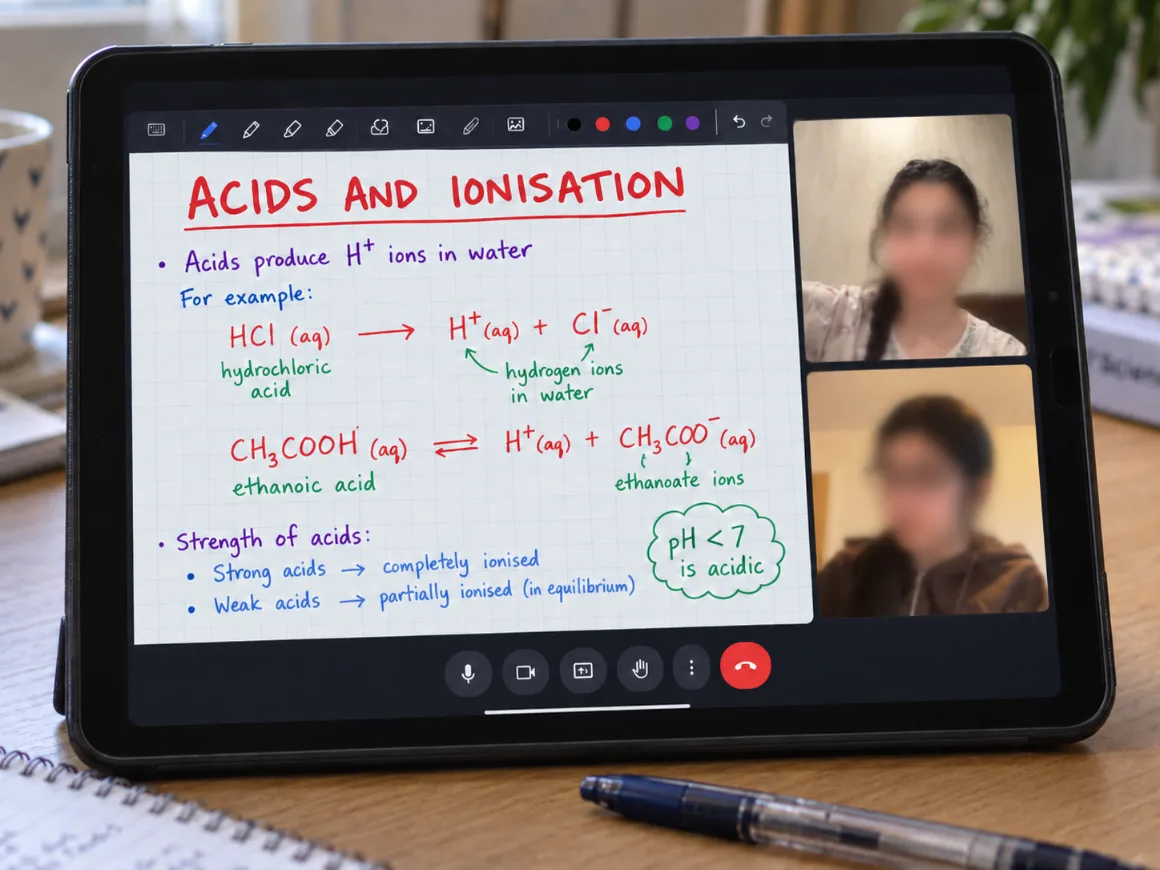 ACIDS AND IONISATION
• Acids produce H⁺ ions in water
For example:
HCl (aq) ⟶ H⁺(aq) + Cl⁻(aq)
hydrochloric acid
hydrogen ions in water
CH₃COOH (aq) ⇌ H⁺(aq) + CH₃COO⁻(aq)
ethanoic acid
ethanoate ions
• Strength of acids:
• Strong acids → completely ionised
• Weak acids → partially ionised (in equilibrium)
pH < 7
is acidic